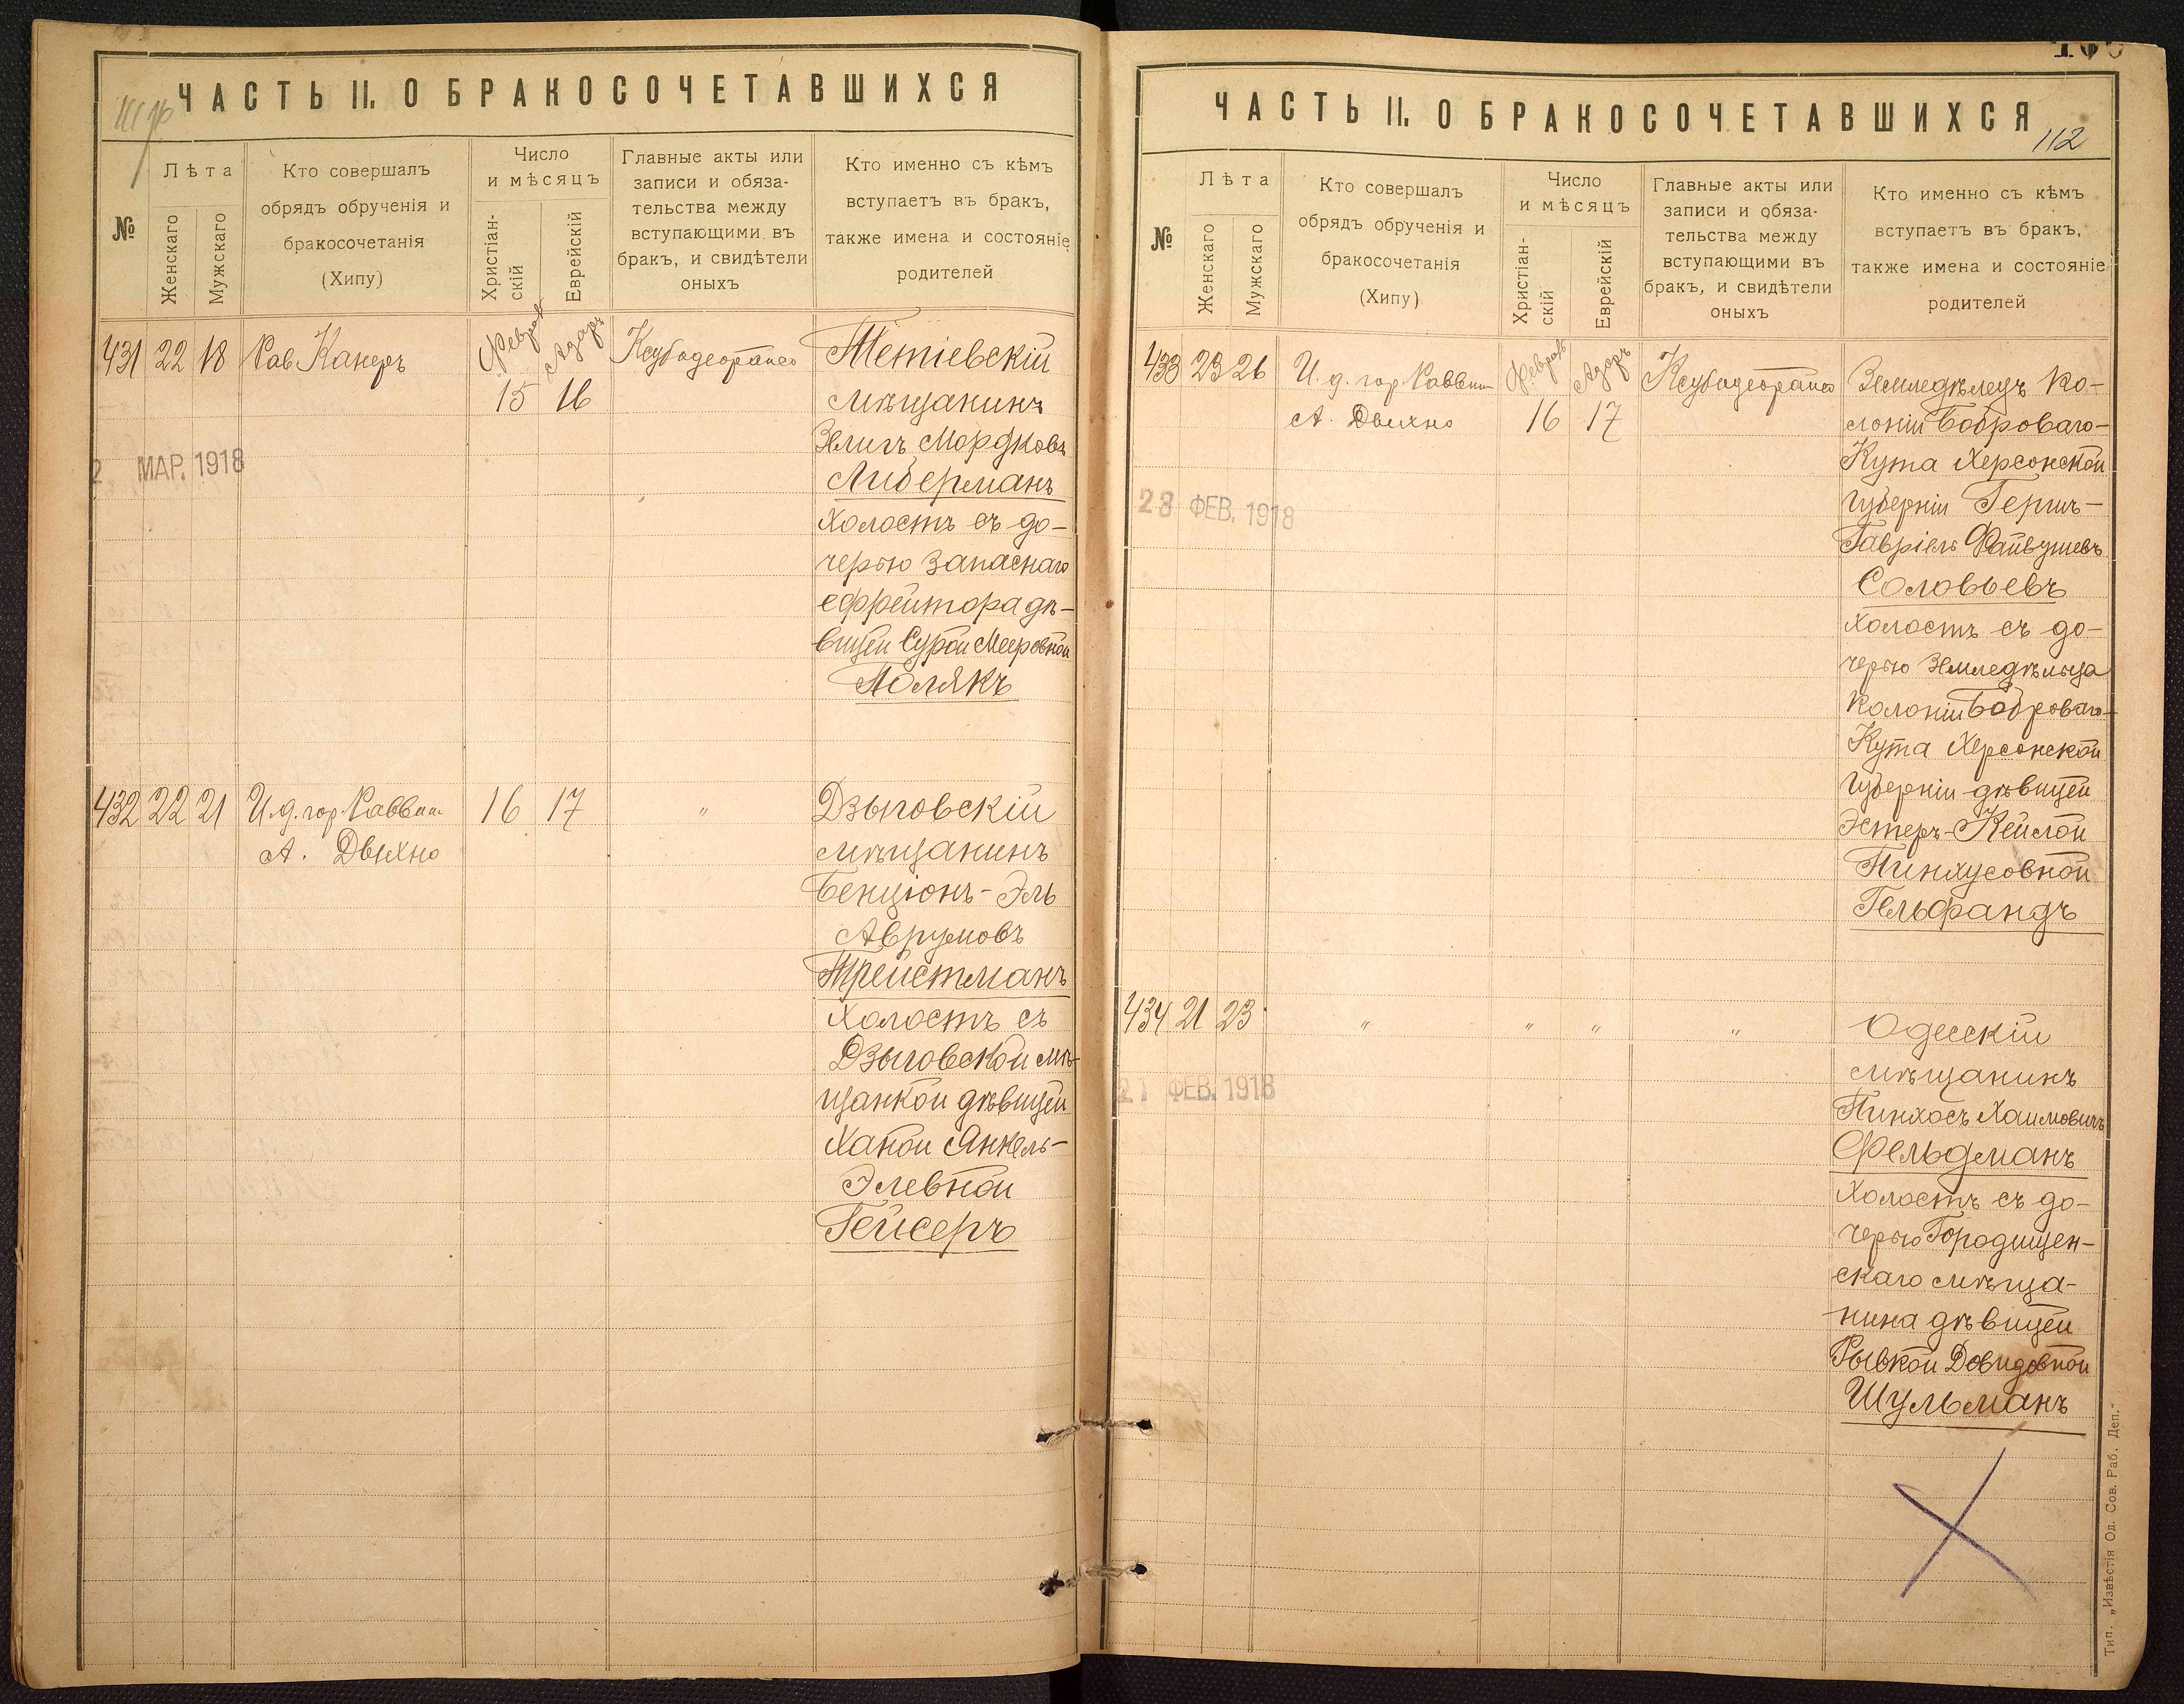 ЧАСТЬ II. О БРАКОСОЧЕТАВШИХСЯ
№
Лѣта
Женскаго
Мужскаго
Кто совершалъ
обрядъ обрученія и
бракосочетанія
(Хипу)
Число
и мѣсяцъ
Христіан-
скій
Еврейскій
Главные акты или
записи и обяза-
тельства между
вступающими въ
бракъ, и свидѣтели
оныхъ
Кто именно съ кѣмъ
вступаетъ въ бракъ,
также имена и состояніе
родителей
431 22 18 Рав Канеръ Феврал Адаръ Ксубадеорайсо Тетіевскій
15 16 мѣщанинъ
Зелигъ Мордковъ
2 МАР. 1918
Либерманъ
холостъ съ до-
черью запаснаго
ефрейтора дѣ-
вицей Сурой Мееровной
Полякъ
432 22 21 И.д. гор. Раввин 16 17 " Дзыговскій
А. Дыхно мѣщанинъ
Бенціонъ-Эль
Аврумовъ
Трейстманъ
холостъ съ
Дзыговской мѣ-
щанкой дѣвицей
Ханой Янкель-
Элевной
Гейсеръ
ЧАСТЬ II. О БРАКОСОЧЕТАВШИХСЯ
112
№
Лѣта
Женскаго
Мужскаго
Кто совершалъ
обрядъ обрученія и
бракосочетанія
(Хипу)
Число
и мѣсяцъ
Христіан-
скій
Еврейскій
Главные акты или
записи и обяза-
тельства между
вступающими въ
бракъ, и свидѣтели
оныхъ
Кто именно съ кѣмъ
вступаетъ въ бракъ,
также имена и состояніе
родителей
433 23 26 И. д. гор. Раввин Феврал Адаръ Ксубадеорайсо Земледѣлецъ ко-
А. Дыхно 16 17 лоніи Боброваго-
Кута Херсонской
28 ФЕВ. 1918
губерніи Гершъ-
Гавріель Файвушевъ
Соловьевъ
холостъ съ до-
черью земледѣльца
колоніи Боброваго-
Кута Херсонской
губерніи дѣвицей
Эстеръ-Кейлой
Пинхусовной
Гельфандъ
434 21 23 " " " " Одесскій
мѣщанинъ
21 ФЕВ. 1918
Пинхосъ Хаимовичъ
Фельдманъ
холостъ съ до-
черью Городищен-
скаго мѣща-
нина дѣвицей
Рывкой Довидовной
Шульманъ
Тип. „Извѣстія Од. Сов. Раб. Деп."